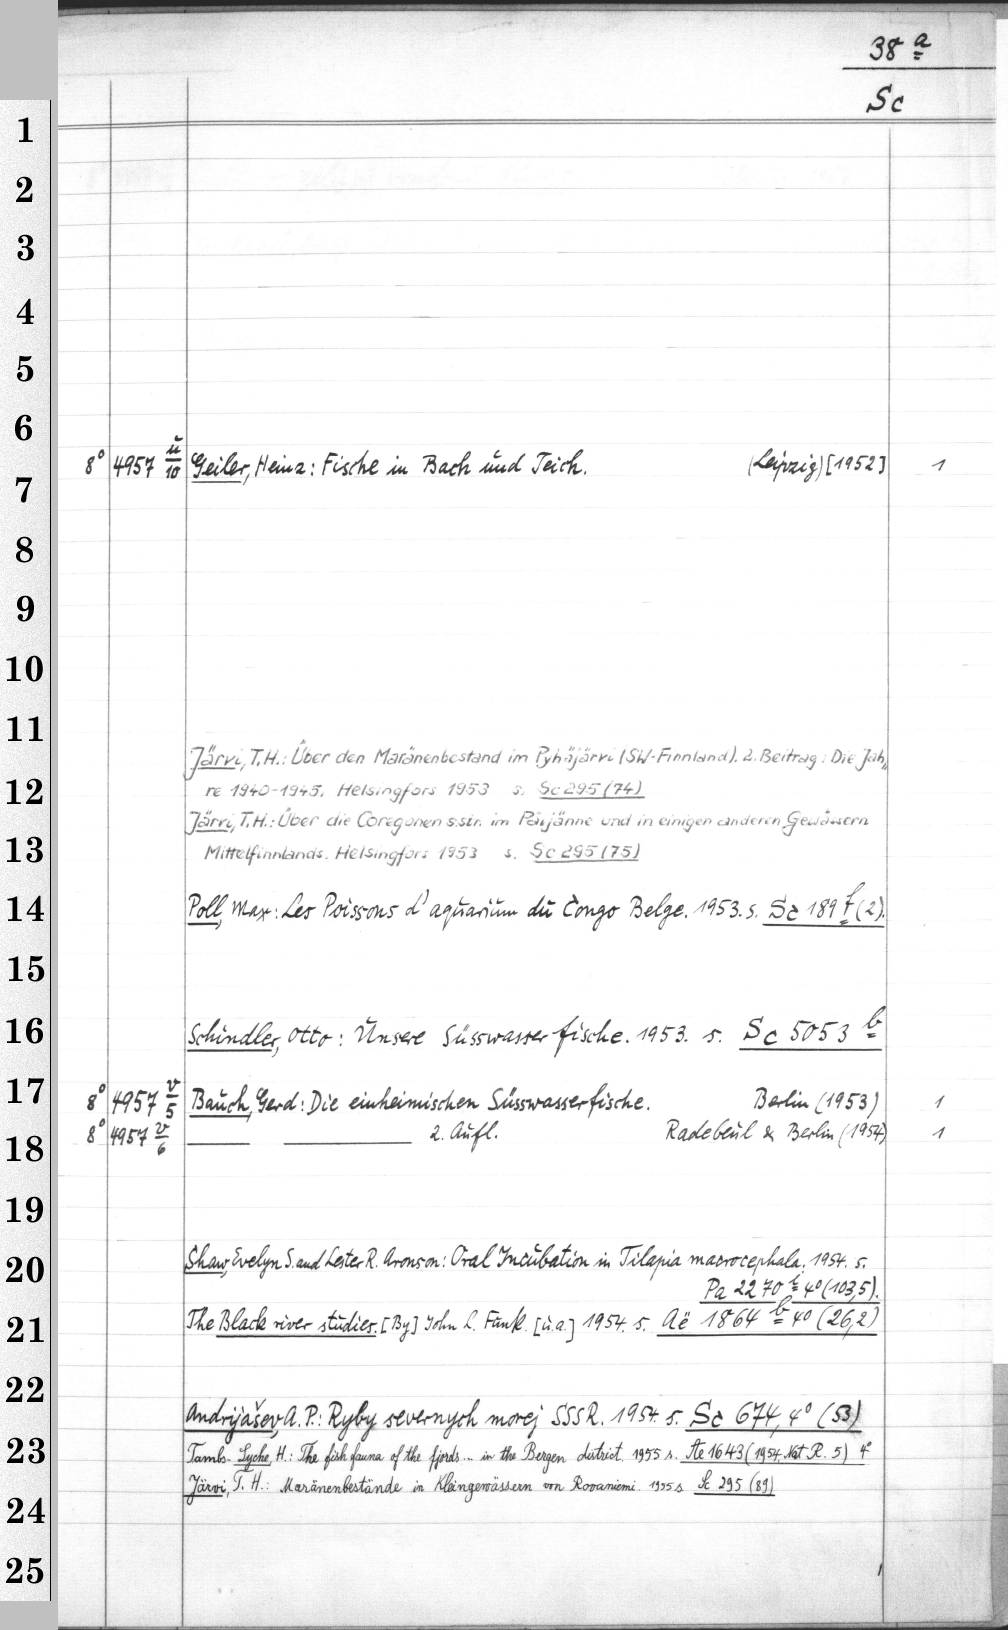 38 a
Sc
1
2
3
4
5
6
8° 4957 ü/10 Geiler, Heinz: Fische in Bach und Teich. (Leipzig) [1952] 1
7
8
9
10
11
Järvi, T.H.: Über den Maränenbestand im Pyhäjärvi (SW-Finnland). 2. Beitrag: Die Jah„
12
re 1940-1945. Helsingfors 1953 s. Sc 295 (74)
Järvi, T.H.: Über die Coregonen s.str. im Päijänne und in einigen anderen Gewässern
13
Mittelfinnlands. Helsingfors 1953 s. Sc 295 (75)
14
Poll, Max: Les Poissons d'aquarium du Congo Belge. 1953. s. Sc 189 f (2).
15
16
Schindler, Otto: Unsere Süsswasserfische. 1953. s. Sc 5053 b
17
8° 4957 v/5 Bauch, Gerd: Die einheimischen Süsswasserfische. Berlin (1953) 1
8° 4957 v/6 —— —— 2. Aufl. Radebeul & Berlin (1954) 1
18
19
20
Shaw, Evelyn S. and Lester R. Aronson: Oral Incubation in Tilapia macrocephala. 1954. s.
Pa 2270 b 4° (103,5).
21
The Black river studies. [By] John L. Funk. [u.a.] 1954. s. Aë 1864 b 4° (26,2)
22
Andrijašev, A.P.: Ryby severnych morej SSSR. 1954. s. Sc 674, 4° (53)
23
Tambs-Lyche, H.: The fish fauna of the fjords... in the Bergen district. 1955 s. Ae 1643 (1954. Nat. R. 5) 4°
Järvi, T. H.: Maränenbestände in Kleingewässern von Rovaniemi. 1955 s. Sc 295 (89)
24
25